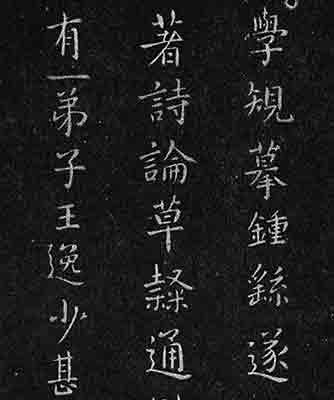 學䂓摹鍾繇遂
著詩論草隸通
有一弟子王逸少甚